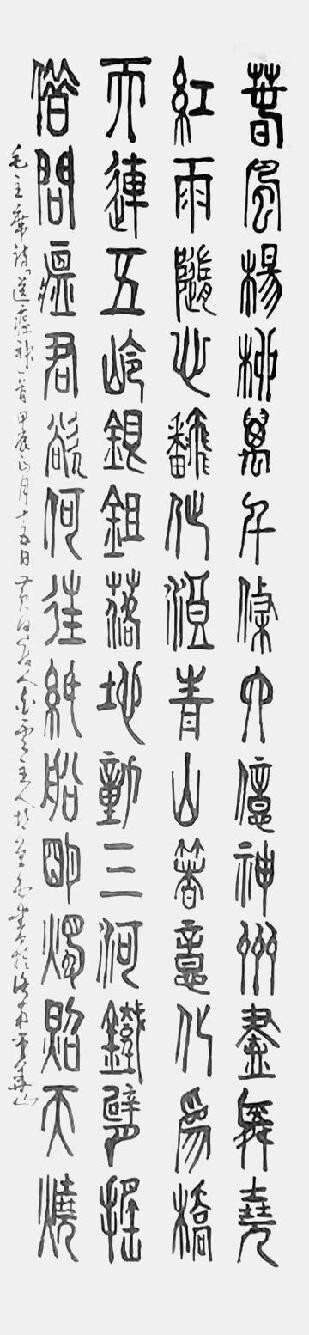 春風楊柳萬千條六億神州盡舜堯
紅雨隨心飜作浪青山箸意化為橋
天連五岭銀鉏落地動三河鐵臂搖
借問瘟君欲何往紙船明燭照天燒
毛主席詩送瘟神一首甲辰四月十五日